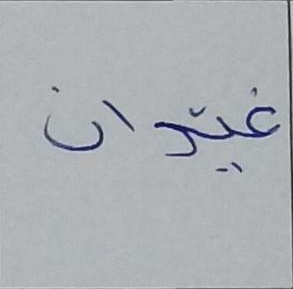 غيتران